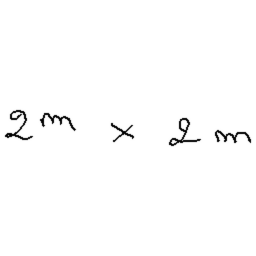 2^m × 2 m